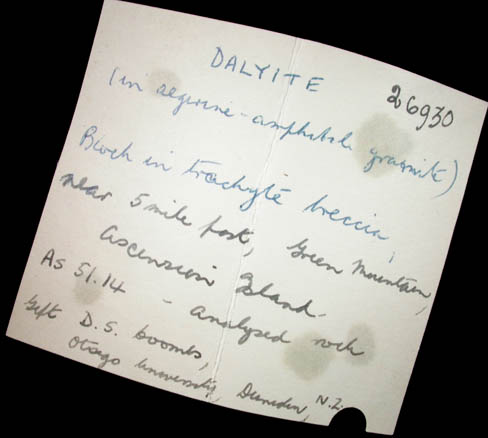 DALYITE 26930
(in aegirine-amphibole granite)
Block in trachyte breccia,
near 5 mile post, Green Mountain,
Ascension Island.
As 51.14 - analysed rock
Gift D.S. Coombs,
Otago University, Dunedin, N.Z.